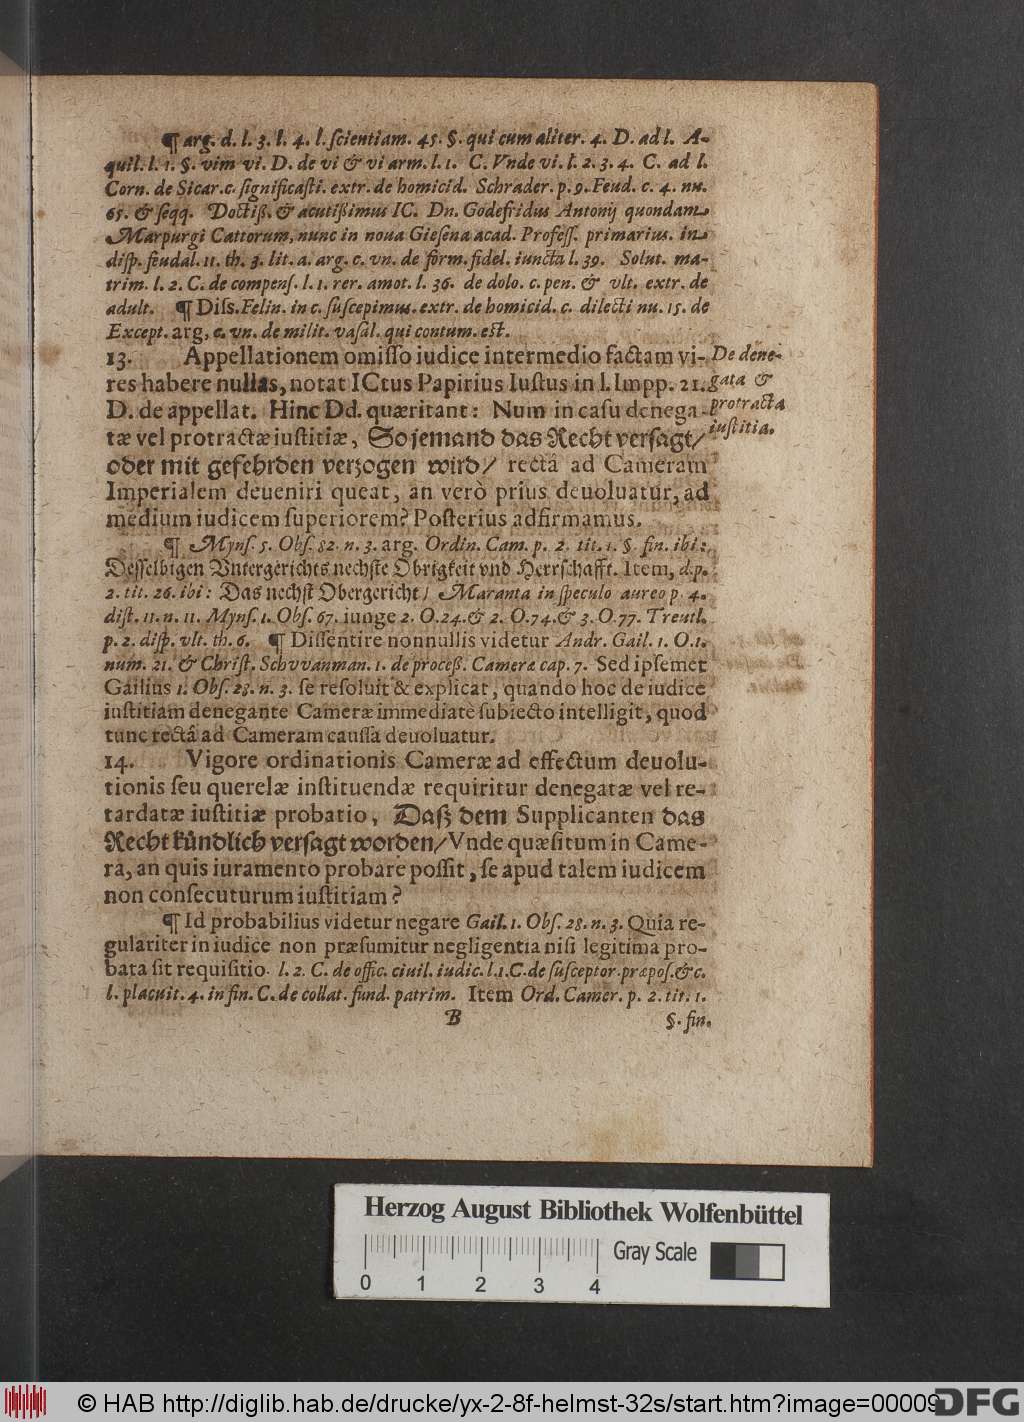 ¶ arg. d. l. 3. l. 4. l. ſcientiam. 45. §. qui cum aliter. 4. D. ad l. A-
quil. l. 1. §. vim vi. D. de vi & vi arm. l. 1. C. Vnde vi. l. 2. 3. 4. C. ad l.
Corn. de Sicar. c. ſignificaſti. extr. de homicid. Schrader. p. 9. Feud. c. 4. nu.
65. & ſeqq. Doctiß. & acutißimus IC. Dn. Godefridus Antonij quondam
Marpurgi Cattorum, nunc in noua Gieſena acad. Profeſſ. primarius. in
diſp. feudal. 11. th. 3. lit. a. arg. c. vn. de form. fidel. iuncta l. 39. Solut. ma-
trim. l. 2. C. de compenſ. l. 1. rer. amot. l. 36. de dolo. c. pen. & vlt. extr. de
adult. ¶ Diſs. Felin. in c. ſuſcepimus. extr. de homicid. c. dilecti nu. 15. de
Except. arg, c. vn. de milit. vaſal. qui contum. eſt.
13. Appellationem omiſſo iudice intermedio factam vi-
res habere nullas, notat ICtus Papirius Iuſtus in l. Impp. 21.
D. de appellat. Hinc Dd. quæritant: Num in caſu denega-
tæ vel protractæ iuſtitiæ, So jemand das Recht verſagt/
oder mit gefehrden verzogen wird/ rectâ ad Cameram
Imperialem deueniri queat, an verò priùs deuoluatur, ad
medium iudicem ſuperiorem? Poſterius adfirmamus.
De dene-
gata &
protracta
iuſtitia.
¶ Mynſ. 5. Obſ. 82. n. 3. arg. Ordin. Cam. p. 2. tit. 1. §. fin. ibi:
Deſſelbigen Vntergerichts nechſte Obrigkeit vnd Herrſchafft. Item, d. p.
2. tit. 26. ibi: Das nechſt Obergericht/ Maranta in ſpeculo aureo p. 4.
diſt. 11. n. 11. Mynſ. 1. Obſ. 67. iunge 2. O. 24. & 2. O. 74. & 3. O. 77. Treutl.
p. 2. diſp. vlt. th. 6. ¶ Diſſentire nonnullis videtur Andr. Gail. 1. O. 1.
num. 21. & Chriſt. Schvvanman. 1. de proceß. Camera cap. 7. Sed ipſemet
Gailius 1. Obſ. 28. n. 3. ſe reſoluit & explicat, quando hoc de iudice
iuſtitiam denegante Cameræ immediatè ſubiecto intelligit, quod
tunc rectâ ad Cameram cauſſa deuoluatur.
14. Vigore ordinationis Cameræ ad effectum deuolu-
tionis ſeu querelæ inſtituendæ requiritur denegatæ vel re-
tardatæ iuſtitiæ probatio, Daſz dem Supplicanten das
Recht kůndlich verſagt worden/ Vnde quæſitum in Came-
ra, an quis iuramento probare poſſit, ſe apud talem iudicem
non conſecuturum iuſtitiam?
¶ Id probabilius videtur negare Gail. 1. Obſ. 28. n. 3. Quia re-
gulariter in iudice non præſumitur negligentia niſi legitima pro-
bata ſit requiſitio. l. 2. C. de offic. ciuil. iudic. l. 1. C. de ſuſceptor. præpoſ. & c.
l. placuit. 4. in fin. C. de collat. fund. patrim. Item Ord. Camer. p. 2. tit. 1.
B §. fin.
Herzog August Bibliothek Wolfenbüttel
0 1 2 3 4 Gray Scale
© HAB http://diglib.hab.de/drucke/yx-2-8f-helmst-32s/start.htm?image=00009
DFG